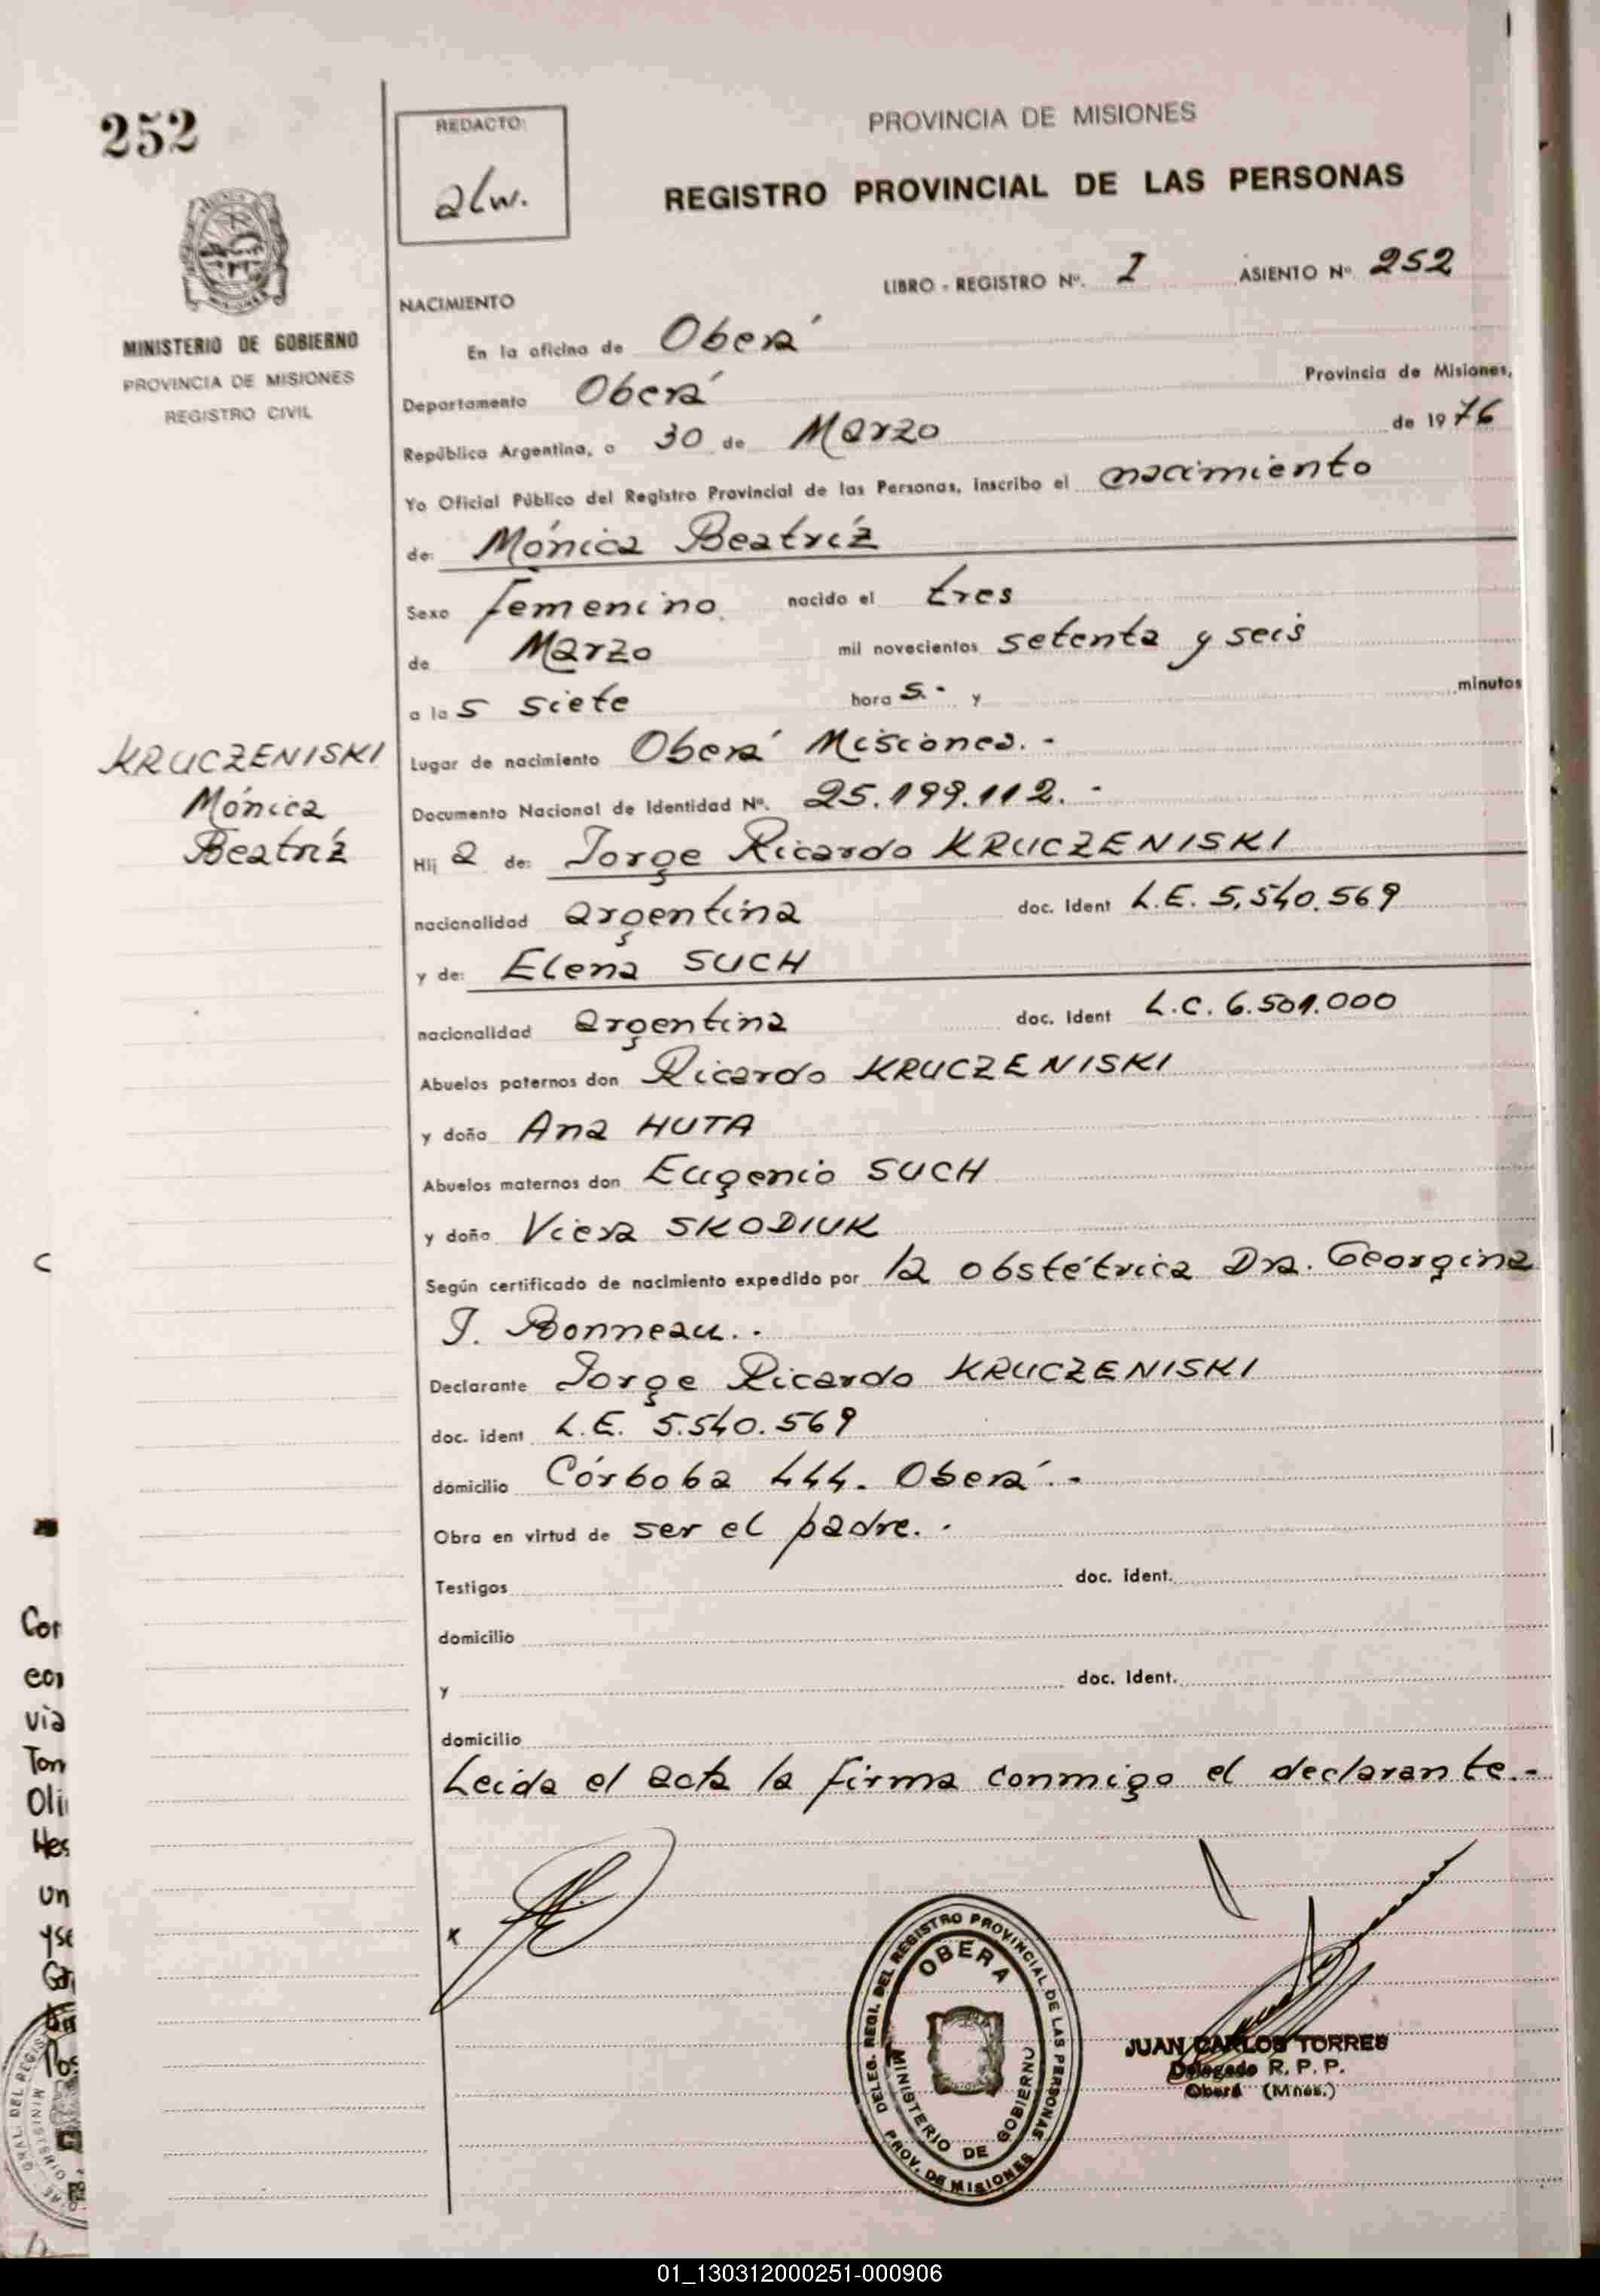 252
REDACTO:
alw.
PROVINCIA DE MISIONES
REGISTRO PROVINCIAL DE LAS PERSONAS
MINISTERIO DE GOBIERNO
PROVINCIA DE MISIONES
REGISTRO CIVIL
LIBRO - REGISTRO Nº. I ASIENTO Nº 252
NACIMIENTO
En la oficina de Oberá
Departamento Oberá Provincia de Misiones,
República Argentina, a 30 de Marzo de 1976
Yo Oficial Público del Registro Provincial de las Personas, inscribo el nacimiento
de: Mónica Beatríz
Sexo femenino. nacido el tres
de Marzo mil novecientos setenta y seis
a la s siete hora s.- y minutos
KRUCZENISKI
Mónica
Beatríz
Lugar de nacimiento Oberá Misiones.-
Documento Nacional de Identidad Nº. 25.199.112.-
Hij a de: Jorge Ricardo KRUCZENISKI
nacionalidad argentina doc. Ident L.E. 5.540.569
y de: Elena SUCH
nacionalidad argentina doc. Ident L.C. 6.501.000
Abuelos paternos don Ricardo KRUCZENISKI
y doña Ana HUTA
Abuelos maternos don Eugenio SUCH
y doña Viera SKODIUK
Según certificado de nacimiento expedido por la obstétrica Dra. Georgina
J. Bonneau..
Declarante Jorge Ricardo KRUCZENISKI
doc. ident L.E. 5.540.569
domicilio Córboba 444. Oberá.-
Obra en virtud de ser el padre..
Testigos doc. ident.
domicilio
y doc. ident.
domicilio
Leida el acta la firma conmigo el declarante.-
x
DELEG. REGI. DEL REGISTRO PROVINCIAL DE LAS PERSONAS
OBERA
MINISTERIO DE GOBIERNO
PROV. DE MISIONES
JUAN CARLOS TORRES
Delegado R. P. P.
Oberá (Mnes.)
Cor
con
via
Tom
Oli
Hes
un
yse
01_130312000251-000906